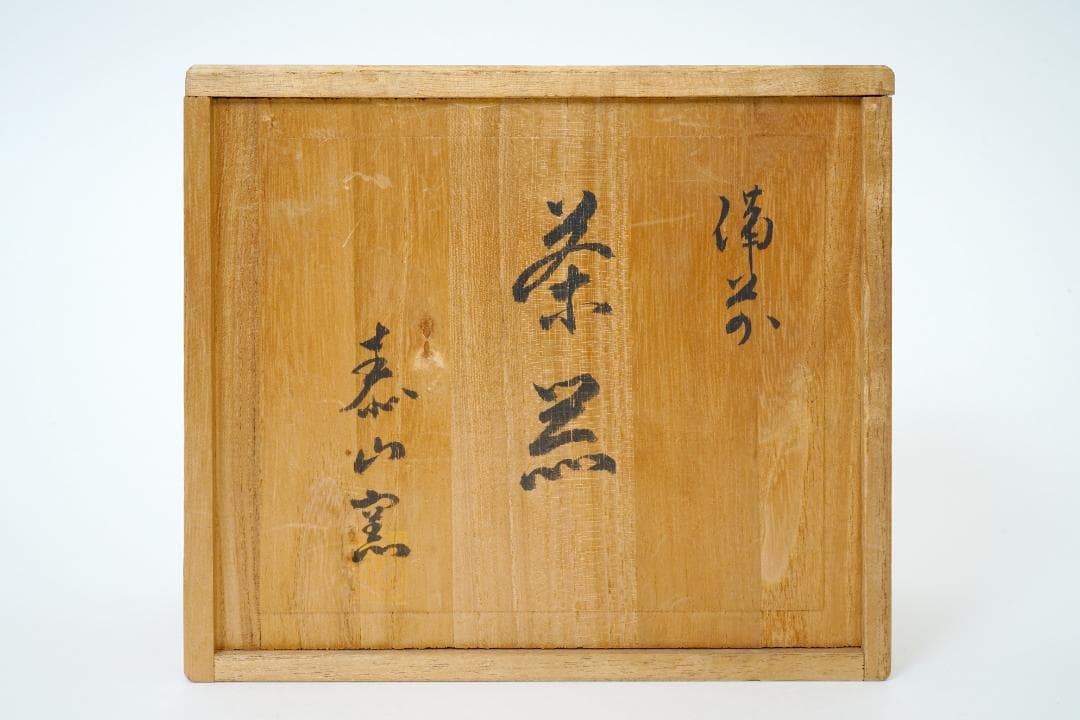 備前
茶器
泰山窯